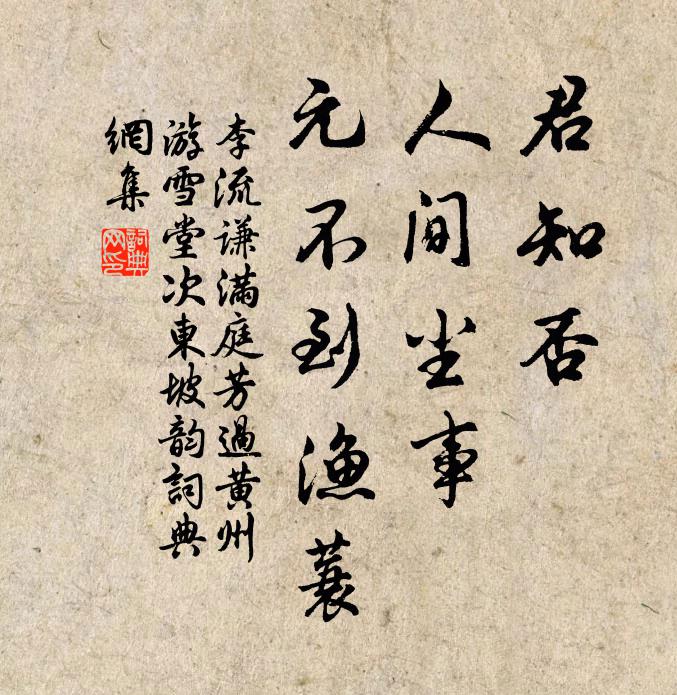 君知否
人间尘事
元不到漁蓑
李流谦满庭芳過黄州
游雪堂次東坡韵詞典
網集
詞典网印